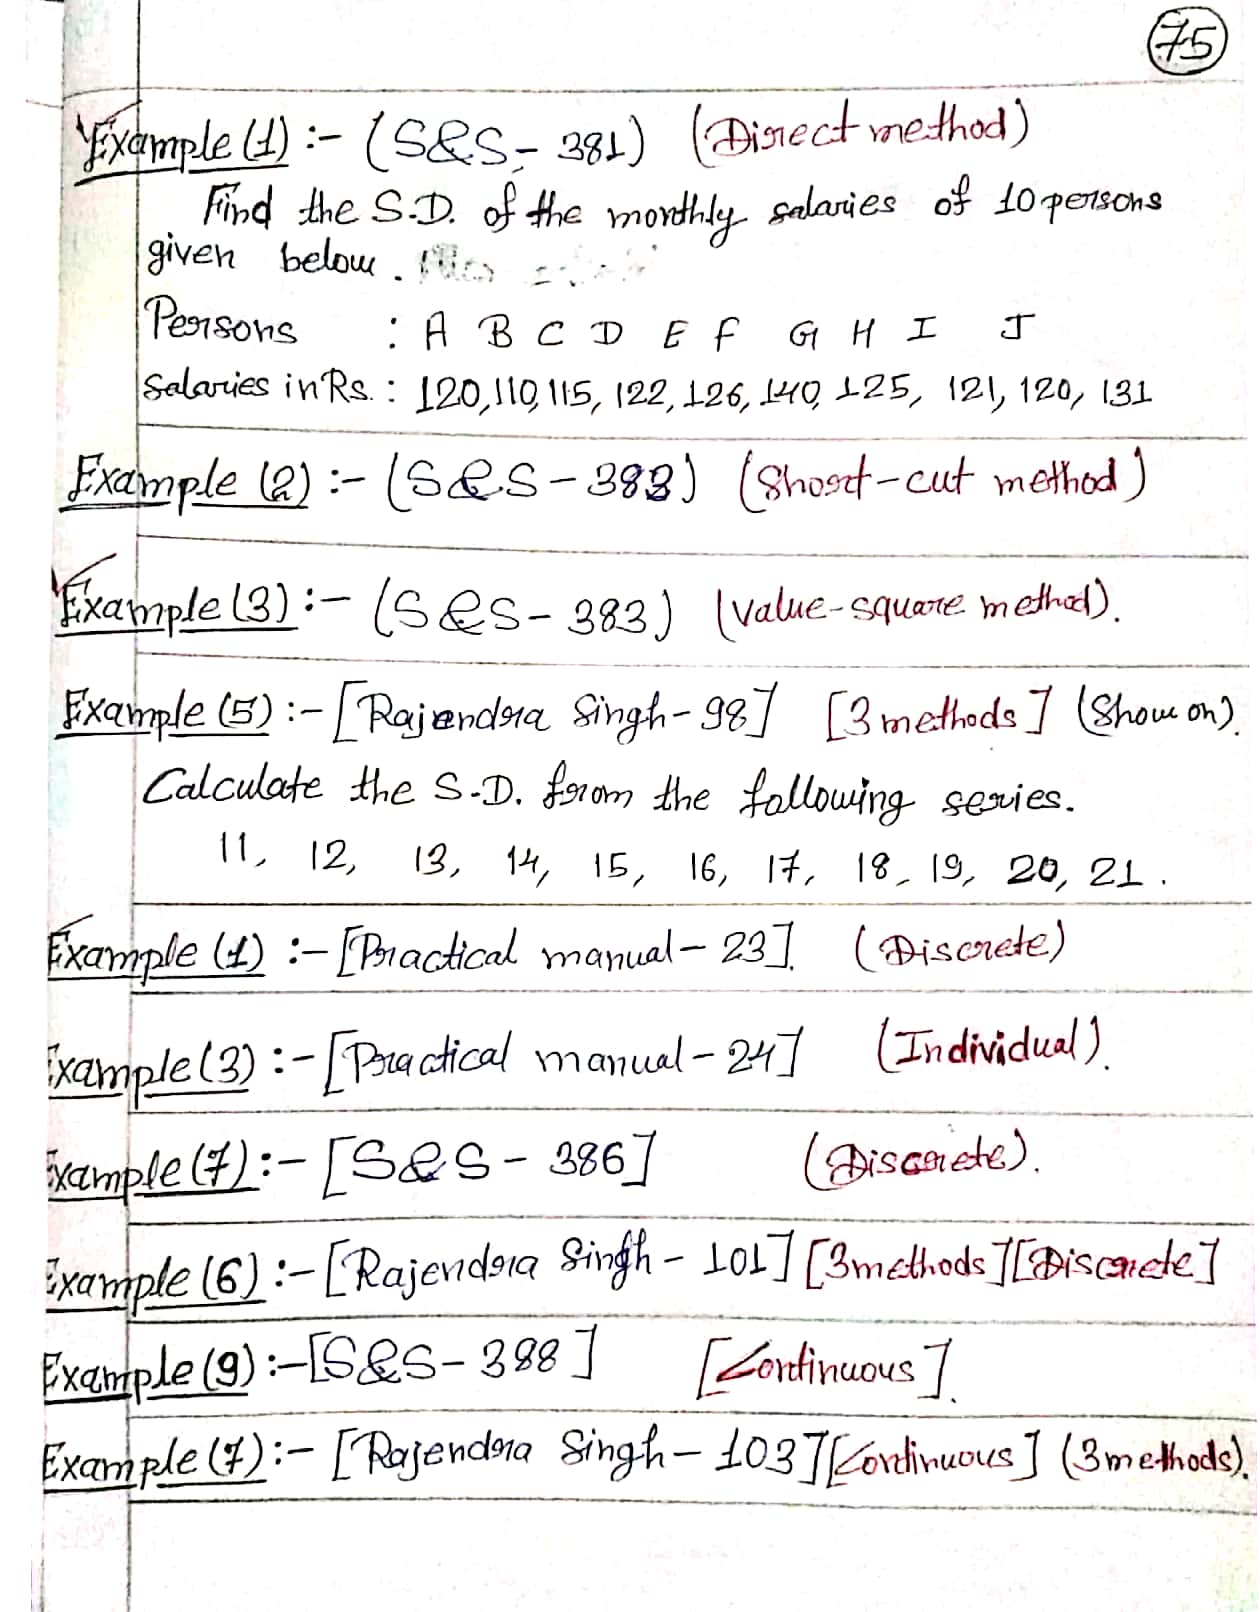 75
Example (1) :- (S&S - 381) (Direct method)
Find the S.D. of the monthly salaries of 10 persons
given below.
Persons : A B C D E F G H I J
Salaries in Rs. : 120, 110, 115, 122, 126, 140, 125, 121, 120, 131
Example (2) :- (S&S - 383) (Short-cut method)
Example (3) :- (S&S - 383) (Value-square method).
Example (5) :- [Rajendra Singh - 98] [3 methods] (Show on).
Calculate the S.D. from the following series.
11, 12, 13, 14, 15, 16, 17, 18, 19, 20, 21.
Example (1) :- [Practical manual - 23]. (Discrete)
Example (3) :- [Practical manual - 24] (Individual).
Example (7) :- [S&S - 386] (Discrete).
Example (6) :- [Rajendra Singh - 101] [3 methods] [Discrete]
Example (9) :- [S&S - 388] [Continuous].
Example (7) :- [Rajendra Singh - 103] [Continuous] (3 methods).